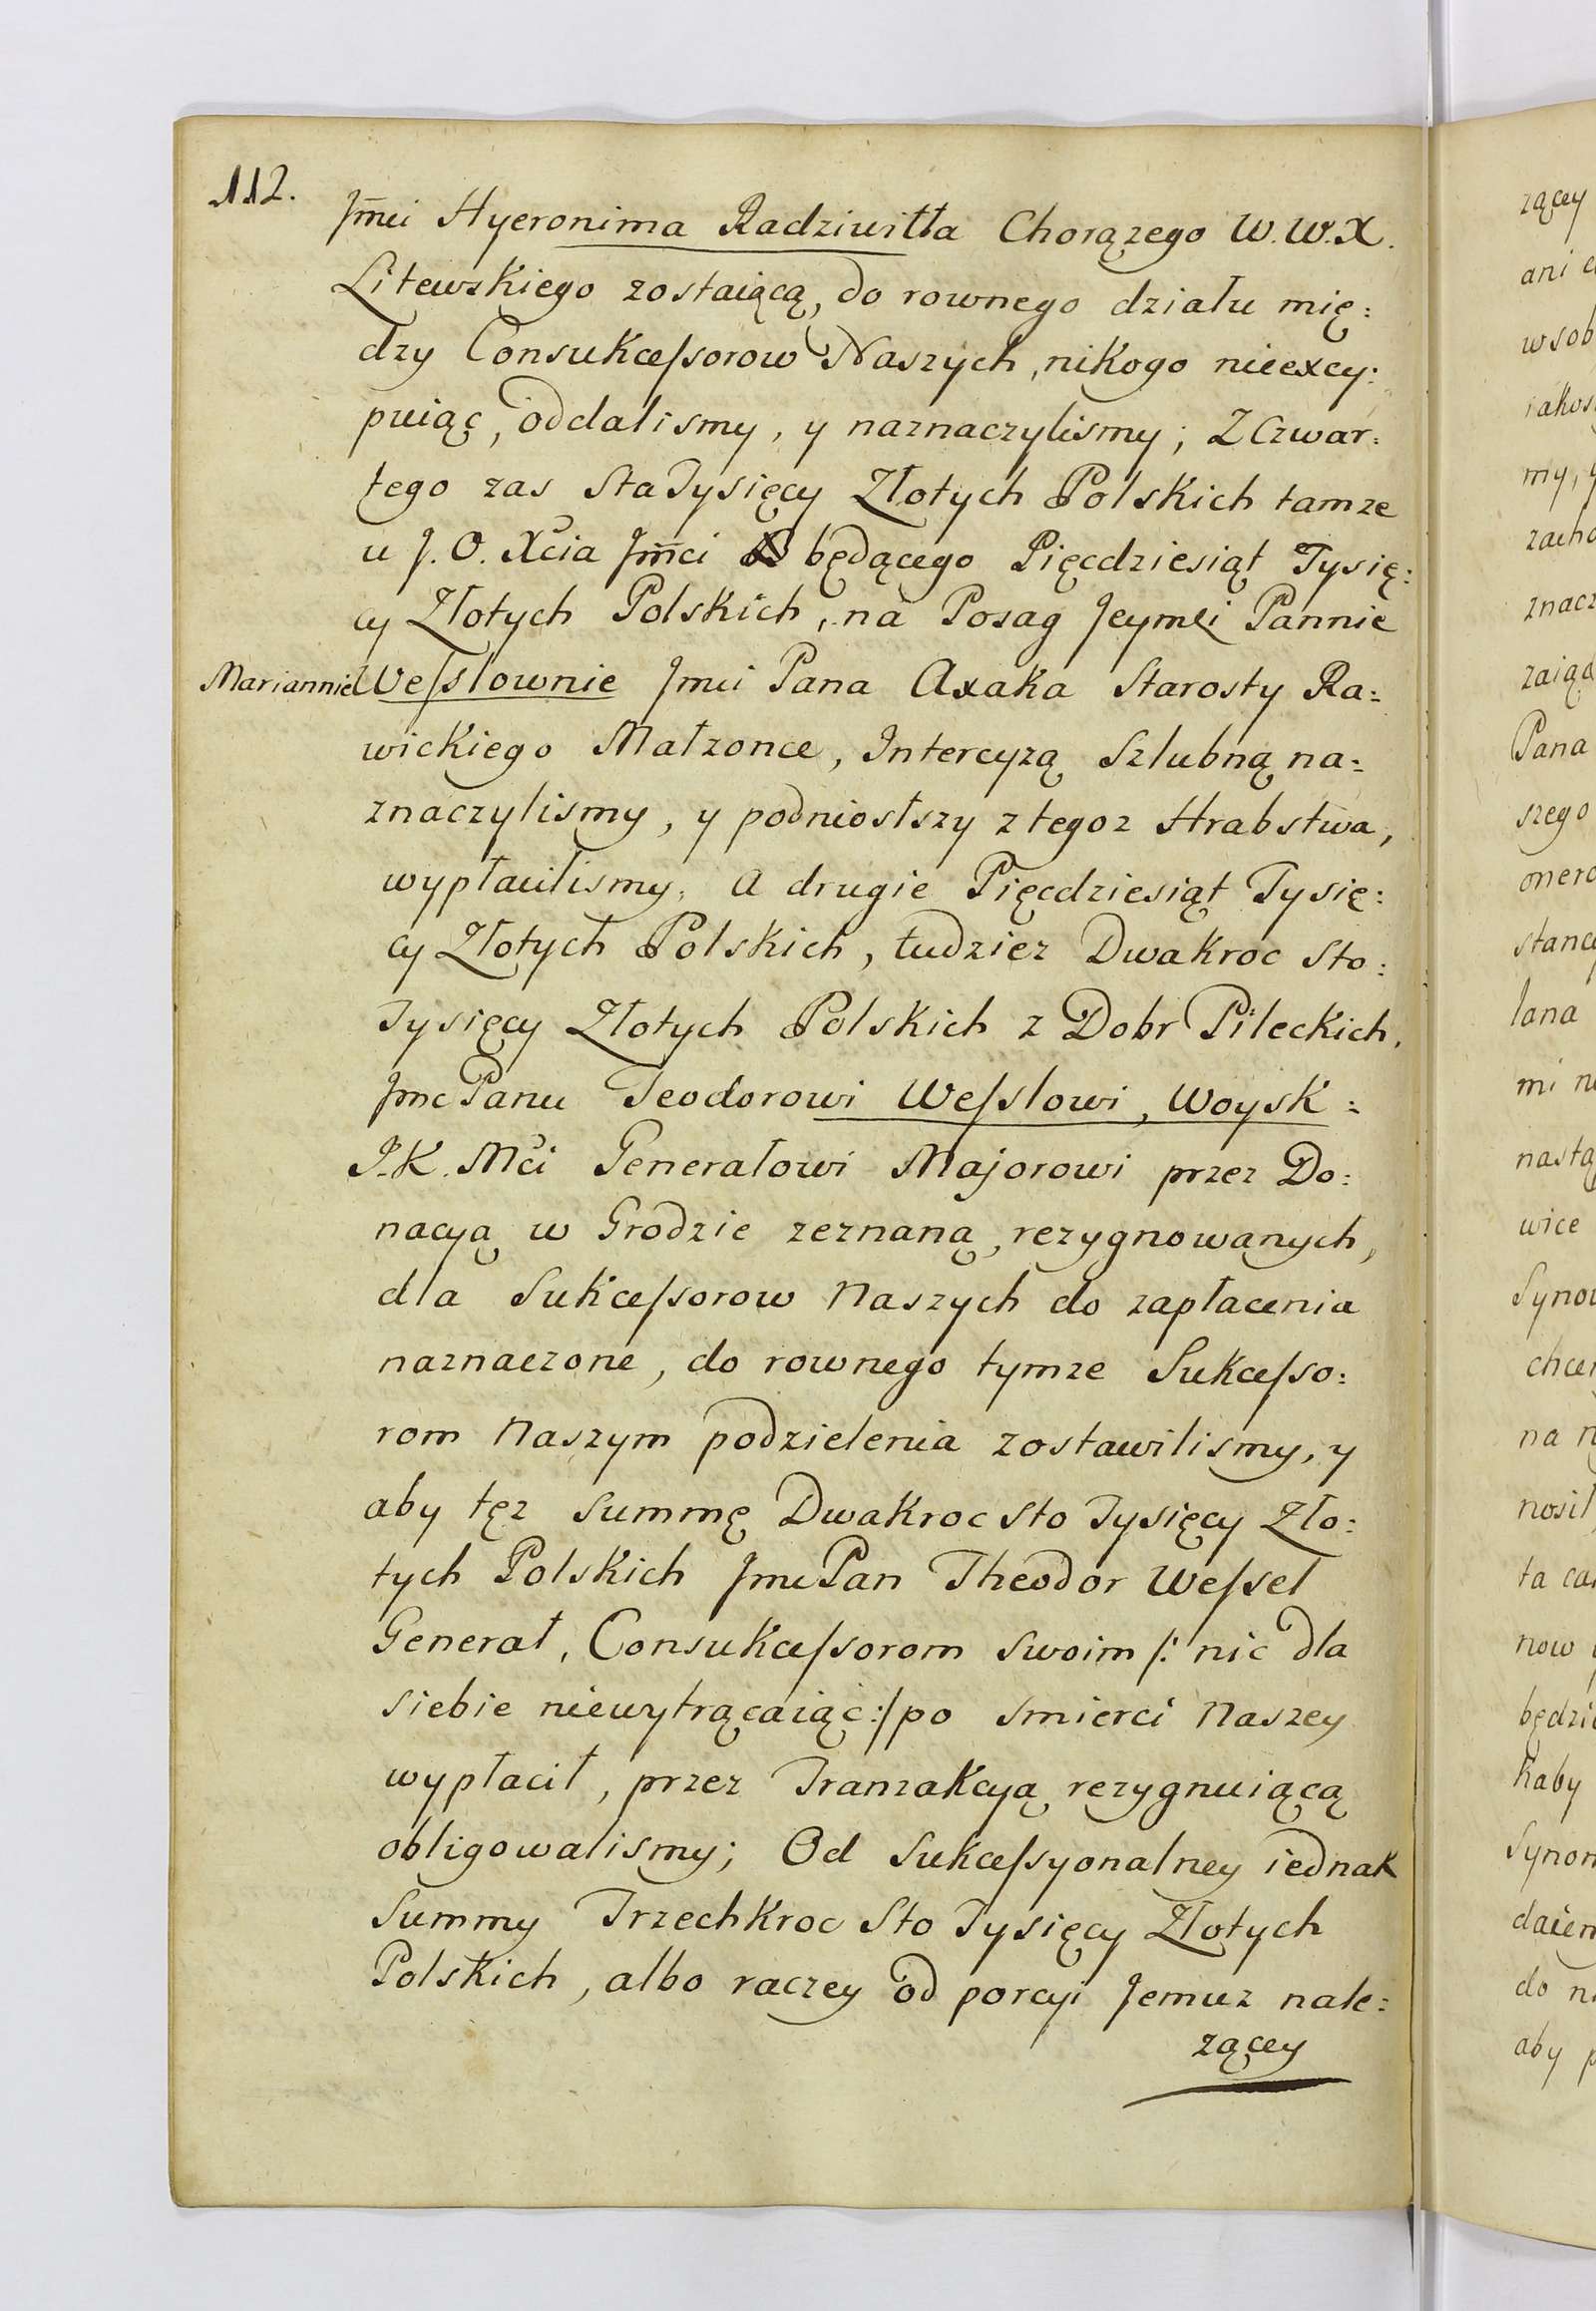 112.
Jm̃ci Hyeronima Radziwiłła Chorązego W. W. X.
Litewskiego zostaiącą, do rownego działu mię:
dzy Consukceſsorow Naszych, nikogo nieexcy:
puiąc, oddalismy, y naznaczylismy; Z Czwar:
tego zas Sta Tysięcy Złotych Polskich tamze
u J. O. Xcia Jm̃ci będącego Pięcdziesiąt Tysię:
cy Złotych Polskich, na Posag Jeymci Pannie
Mariannie Weſslownie Jmci Pana Axaka Starosty Ra:
wickiego Małzonce, Intercyzą Szlubną na:
znaczylismy, y podniosłszy z tegoz Hrabstwa,
wypłacilismy. A drugie Pięcdziesiąt Tysię:
cy Złotych Polskich, tudziez Dwakroc Sto:
Tysięcy Złotych Polskich z Dobr Pileckich,
Jmc Panu Teodorowi Weſslowi, Woysk:
J. K. Mci Generałowi Majorowi przez Do:
nacyą w Grodzie zeznaną, rezygnowanych,
dla Sukceſsorow Naszych do zapłacenia
naznaczone, do rownego tymze Sukceſso:
rom Naszym podzielenia zostawilismy, y
aby tęz summę Dwakroc Sto Tysięcy Zło:
tych Polskich Jmc Pan Theodor Weſsel
Generał, Consukceſsorom swoim /: nic dla
siebie niewytrącaiąc:/ po smierci Naszey
wypłacił, przez Tranzakcyą rezygnuiącą
obligowalismy; Od Sukceſsyonalney iednak
Summy Trzechkroc Sto Tysięcy Złotych
Polskich, albo raczey od porcyi Jemuz nale:
zącey
zącey
ani
wsob
iakos
my,
zacho
znacz
zaiąd
Pana
szego
onero
stancy
lana
mi
nastą
wice
Synow
chcem
na
nosił
ta
now
będzi
kaby
Synom
daiem
do
aby